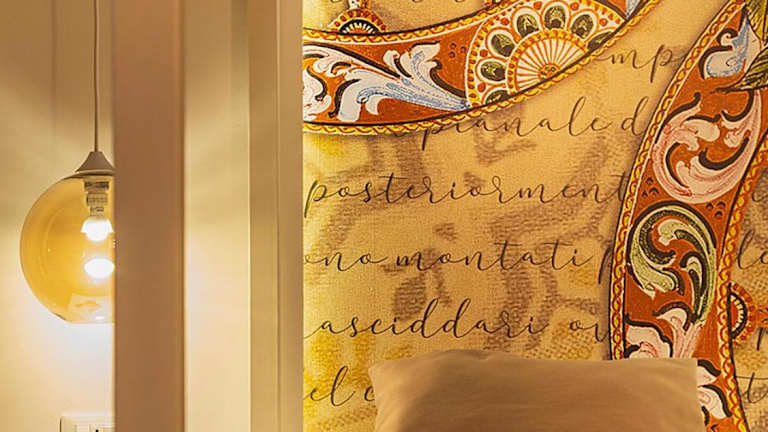 mp
pianale d
posteriorment
ono montati p le
asciddari o
el c